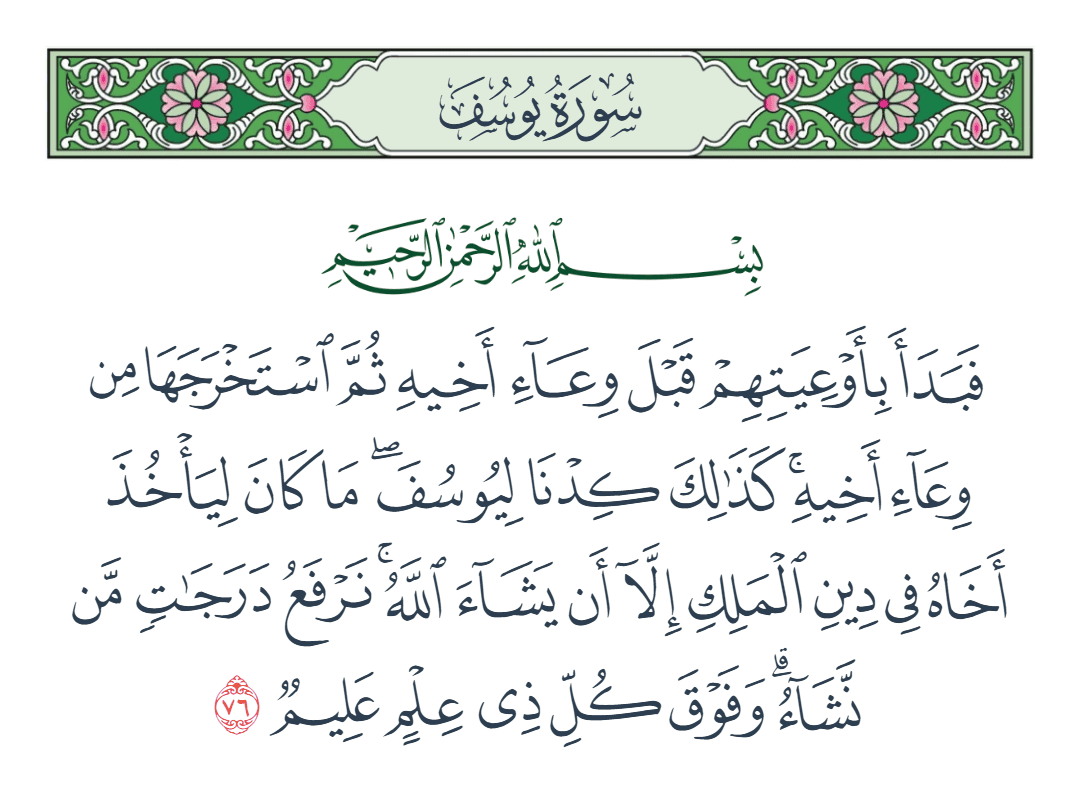 سُورَةُ يُوسُفَ
بِسْمِ ٱللَّهِ ٱلرَّحْمَٰنِ ٱلرَّحِيمِ
فَبَدَأَ بِأَوْعِيَتِهِمْ قَبْلَ وِعَآءِ أَخِيهِ ثُمَّ ٱسْتَخْرَجَهَا مِن
وِعَآءِ أَخِيهِ ۚ كَذَٰلِكَ كِدْنَا لِيُوسُفَ ۖ مَا كَانَ لِيَأْخُذَ
أَخَاهُ فِى دِينِ ٱلْمَلِكِ إِلَّآ أَن يَشَآءَ ٱللَّهُ ۚ نَرْفَعُ دَرَجَٰتٍ مَّن
نَّشَآءُ ۗ وَفَوْقَ كُلِّ ذِى عِلْمٍ عَلِيمٌ ٧٦